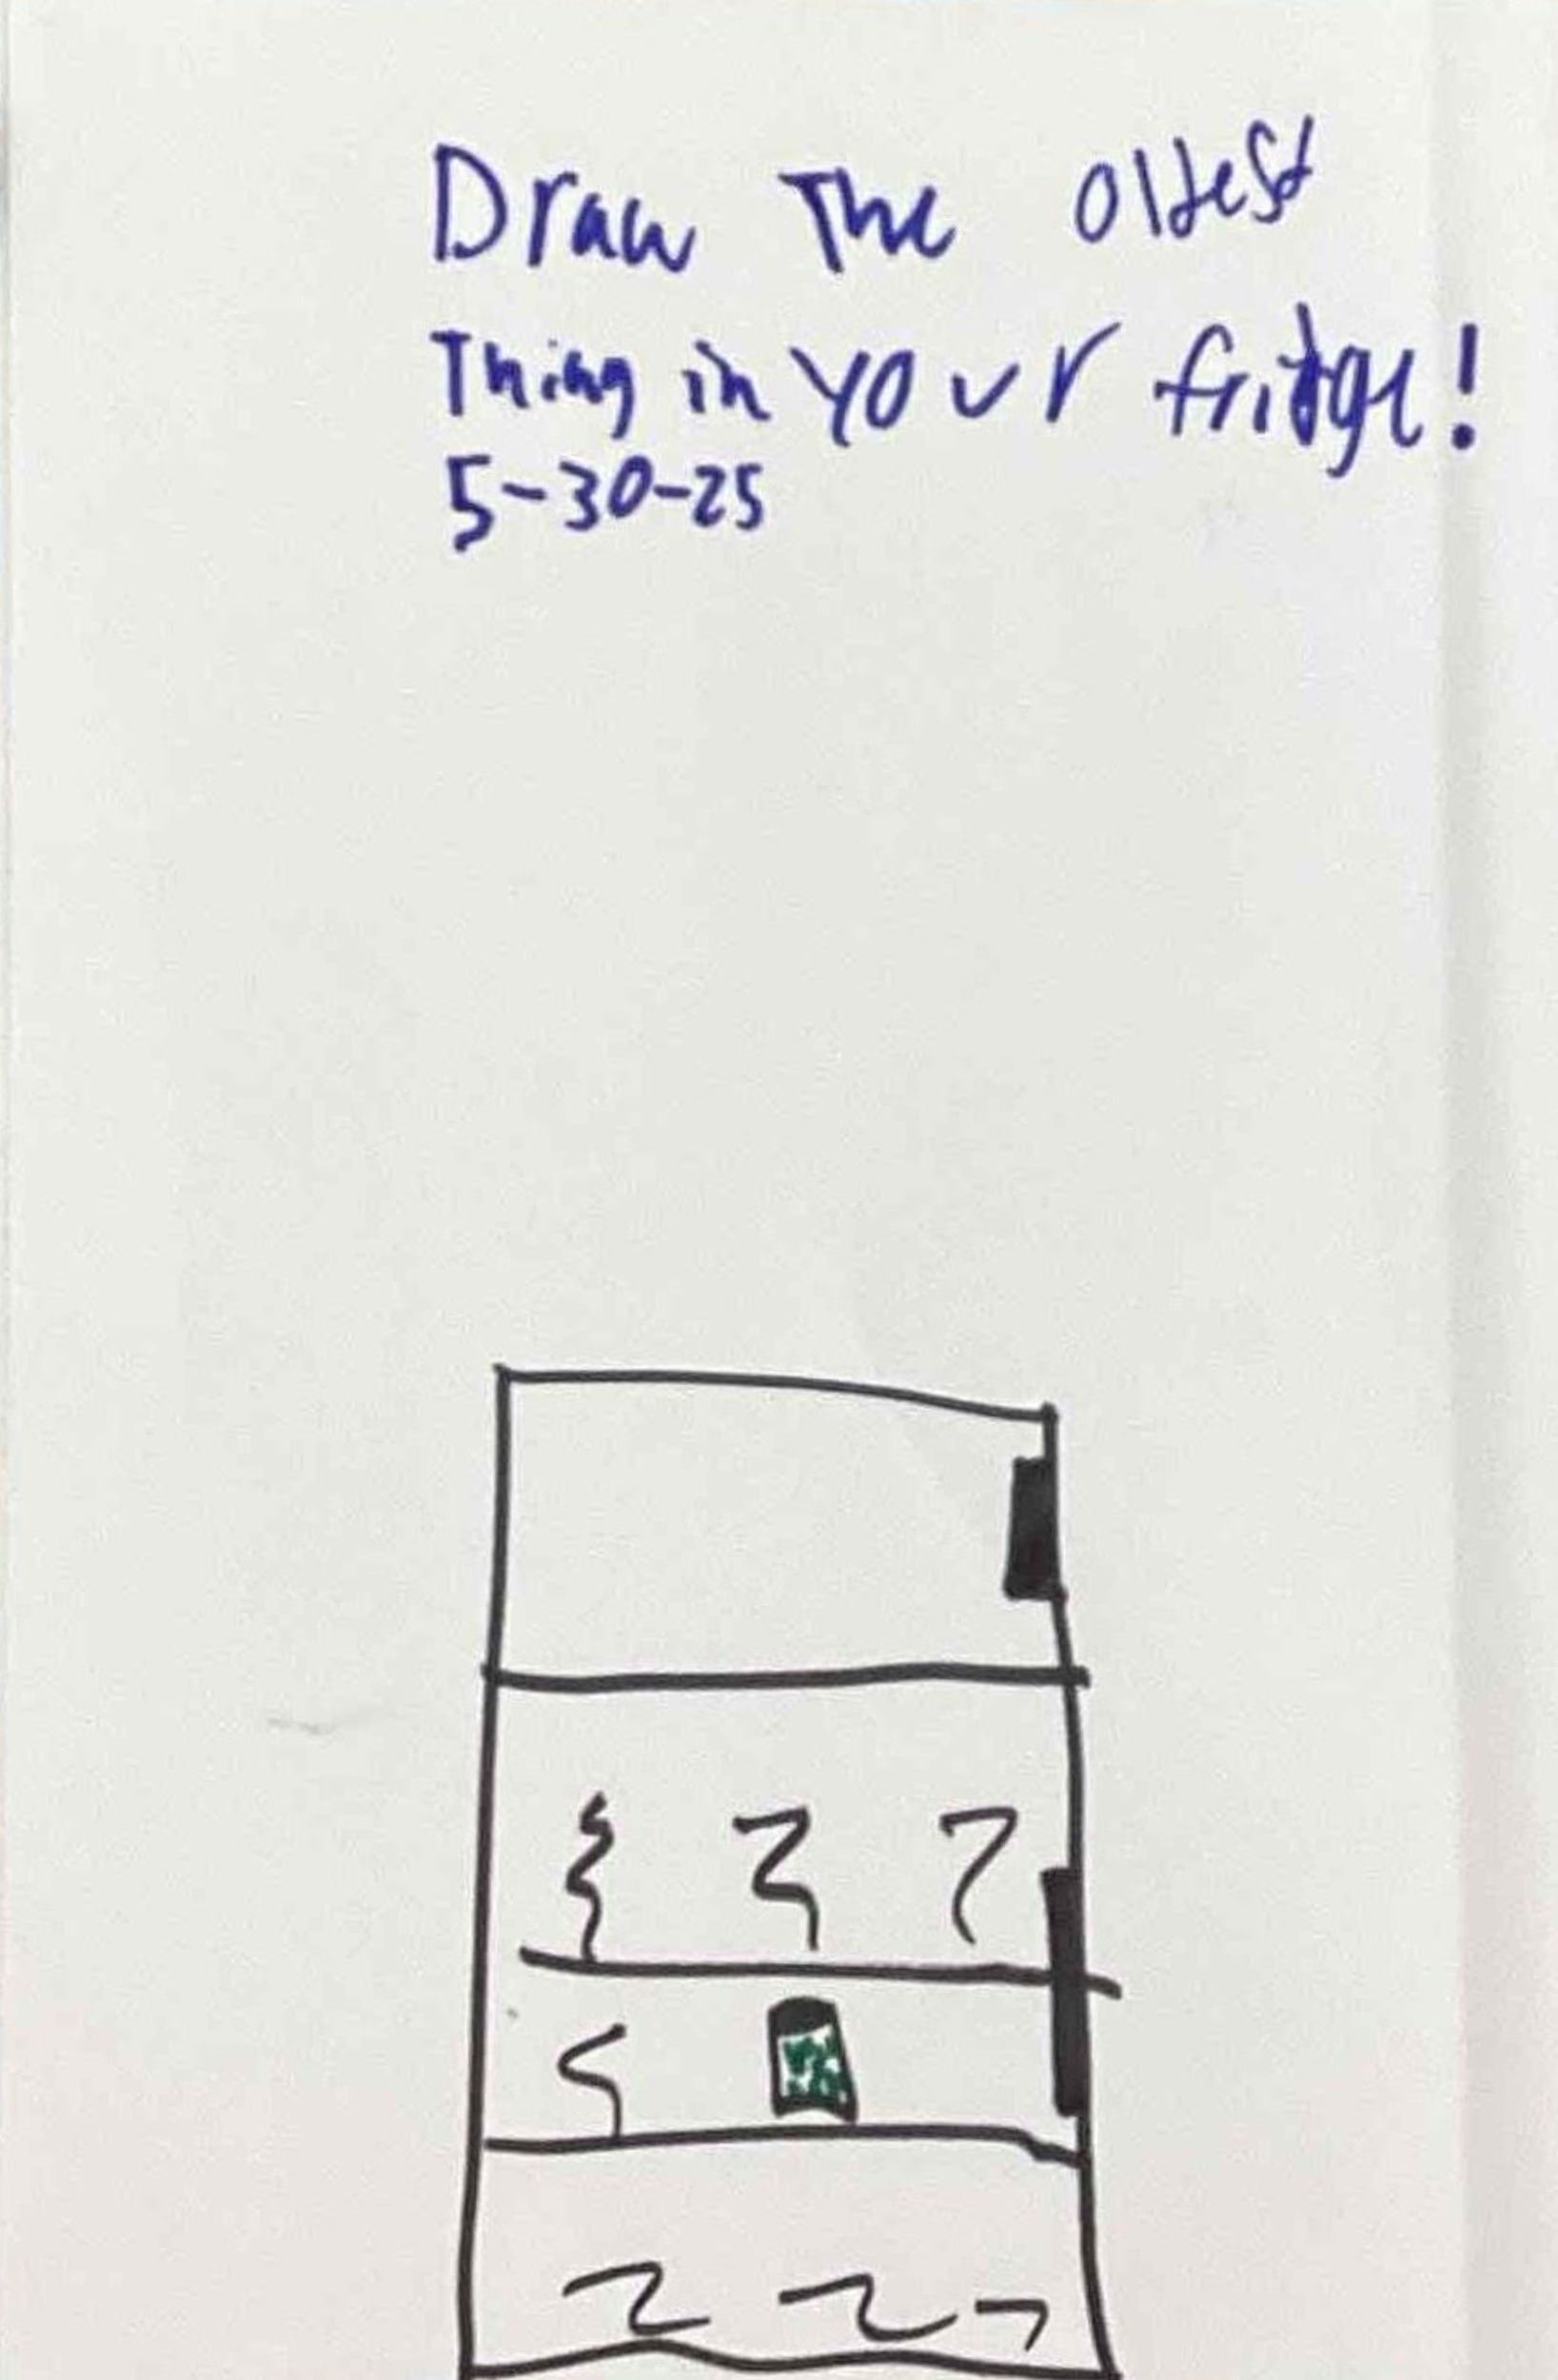 Draw The oldest
Thing in YOUr fridge!
5-30-25